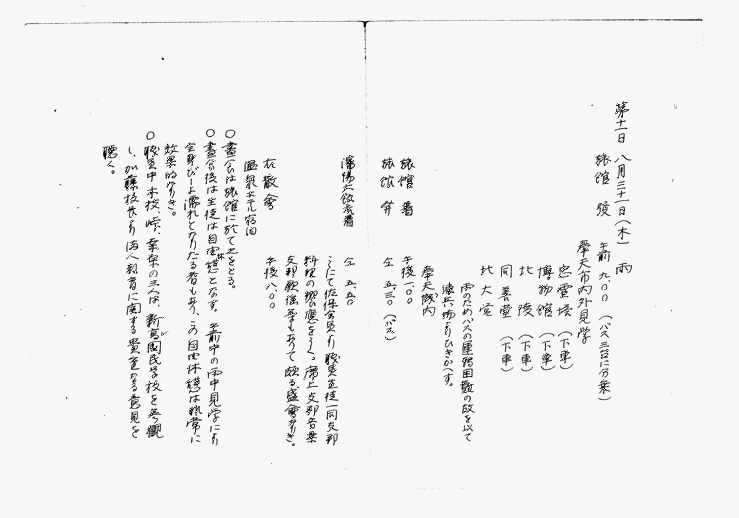 第十一日 八月三十一日(木) 雨
旅館 發 午前 九.〇〇 (バス三台に分乗)
奉天市内外見学
忠霊塔 (下車)
博物館 (下車)
北陵 (下車)
同善堂 (下車)
北大営
雨のためバスの運転困難の故を以て
途中よりひきかへす。
奉天城内
旅館 着 午後 一.〇〇
旅館 発 仝 五.三〇 (バス)
瀋陽大飯店着 仝 五.五〇
ここにて佐伴会員より職員生徒一同支那
料理の饗應をうく。席上支那音楽
支那歌謡等もありて頗る盛會なりき。
右散會 午後 八.〇〇
温泉ホテル宿泊
〇 晝食は旅館に於て之をとる。
〇 晝食後は生徒は自由休憩となす。午前中の雨中見学により
全身びしょ濡れとなりたる者もあり、この自由休憩は非常に
効果的なりき。
〇 職員中 木校、峠、葉栗の三人は、新高國民学校を参觀
し、加藤校長より満人教育に関する貴重なる意見を
聴く。